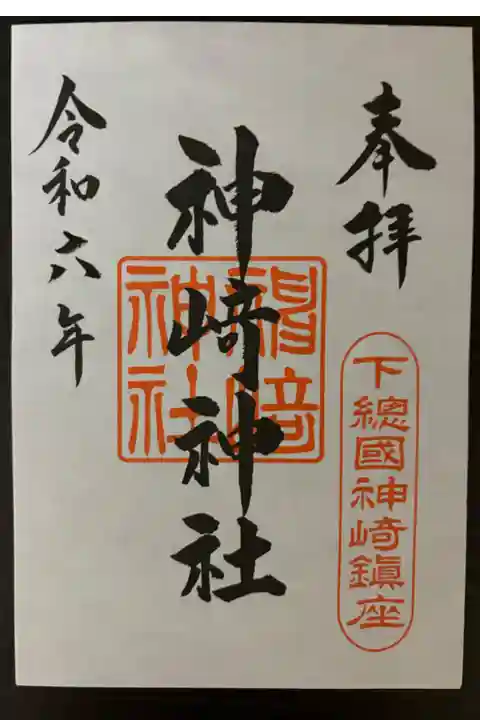 奉拝
下總國神崎鎮座
神崎神社
令和六年